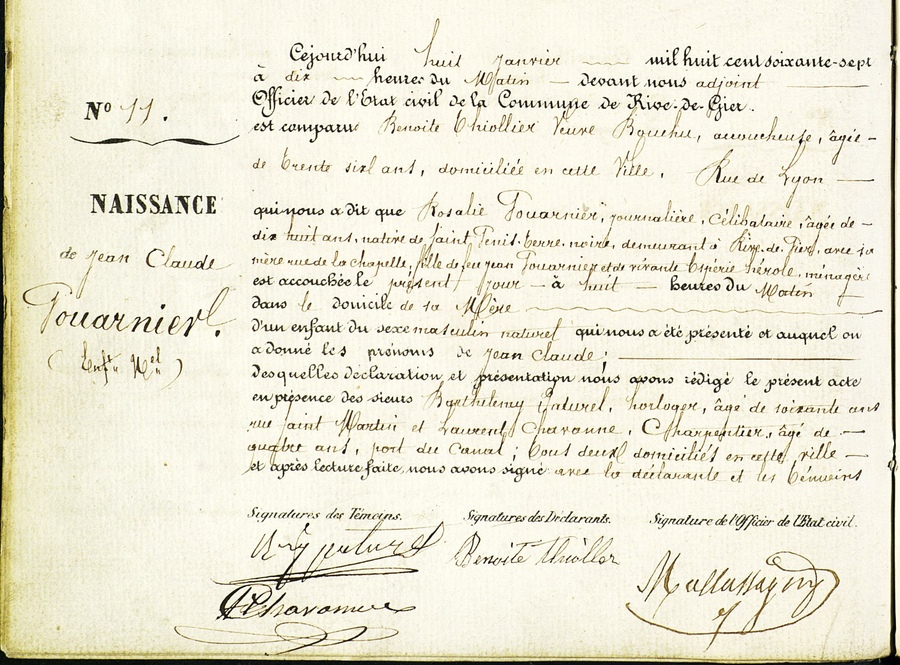 Cejourd'hui huit janvier mil huit cent soixante-sept
à dix heures du Matin devant nous adjoint
Officier de l'Etat civil de la Commune de Rive-de-Gier.
N° 11.
est comparue Benoite Thiollier Veuve Bouchu, accoucheuse, âgée
de trente six ans, domiciliée en cette Ville, Rue de Lyon
NAISSANCE
de Jean Claude
Fouarnier.
(Enft Nel)
qui nous a dit que Rosalie Fouarnier, journalière, célibataire, âgée de
dix huit ans, native de Saint Genis-terre-noire, demeurant à Rive-de-Gier, avec sa
mère rue de la chapelle, fille de feu Jean Fouarnier et de vivante ménagère
est accouchée le présent jour à huit heures du Matin
dans le domicile de sa Mère
d'un enfant du sexe masculin naturel qui nous a été présenté et auquel on
a donné les prénoms de Jean Claude ;
desquelles déclaration et présentation nous avons rédigé le présent acte
en présence des sieurs Barthelemy Paturel, horloger, âgé de soixante ans
rue Saint Martin et Laurent Chavanne, Charpentier, âgé de
quatre ans, port du Canal ; tous deux domiciliés en cette ville
et après lecture faite, nous avons signé avec la déclarante et les témoins
Signatures des Témoins. Signatures des Déclarants. Signature de l'Officier de l'Etat civil.
paturel Benoite Thiollier
Chavanne